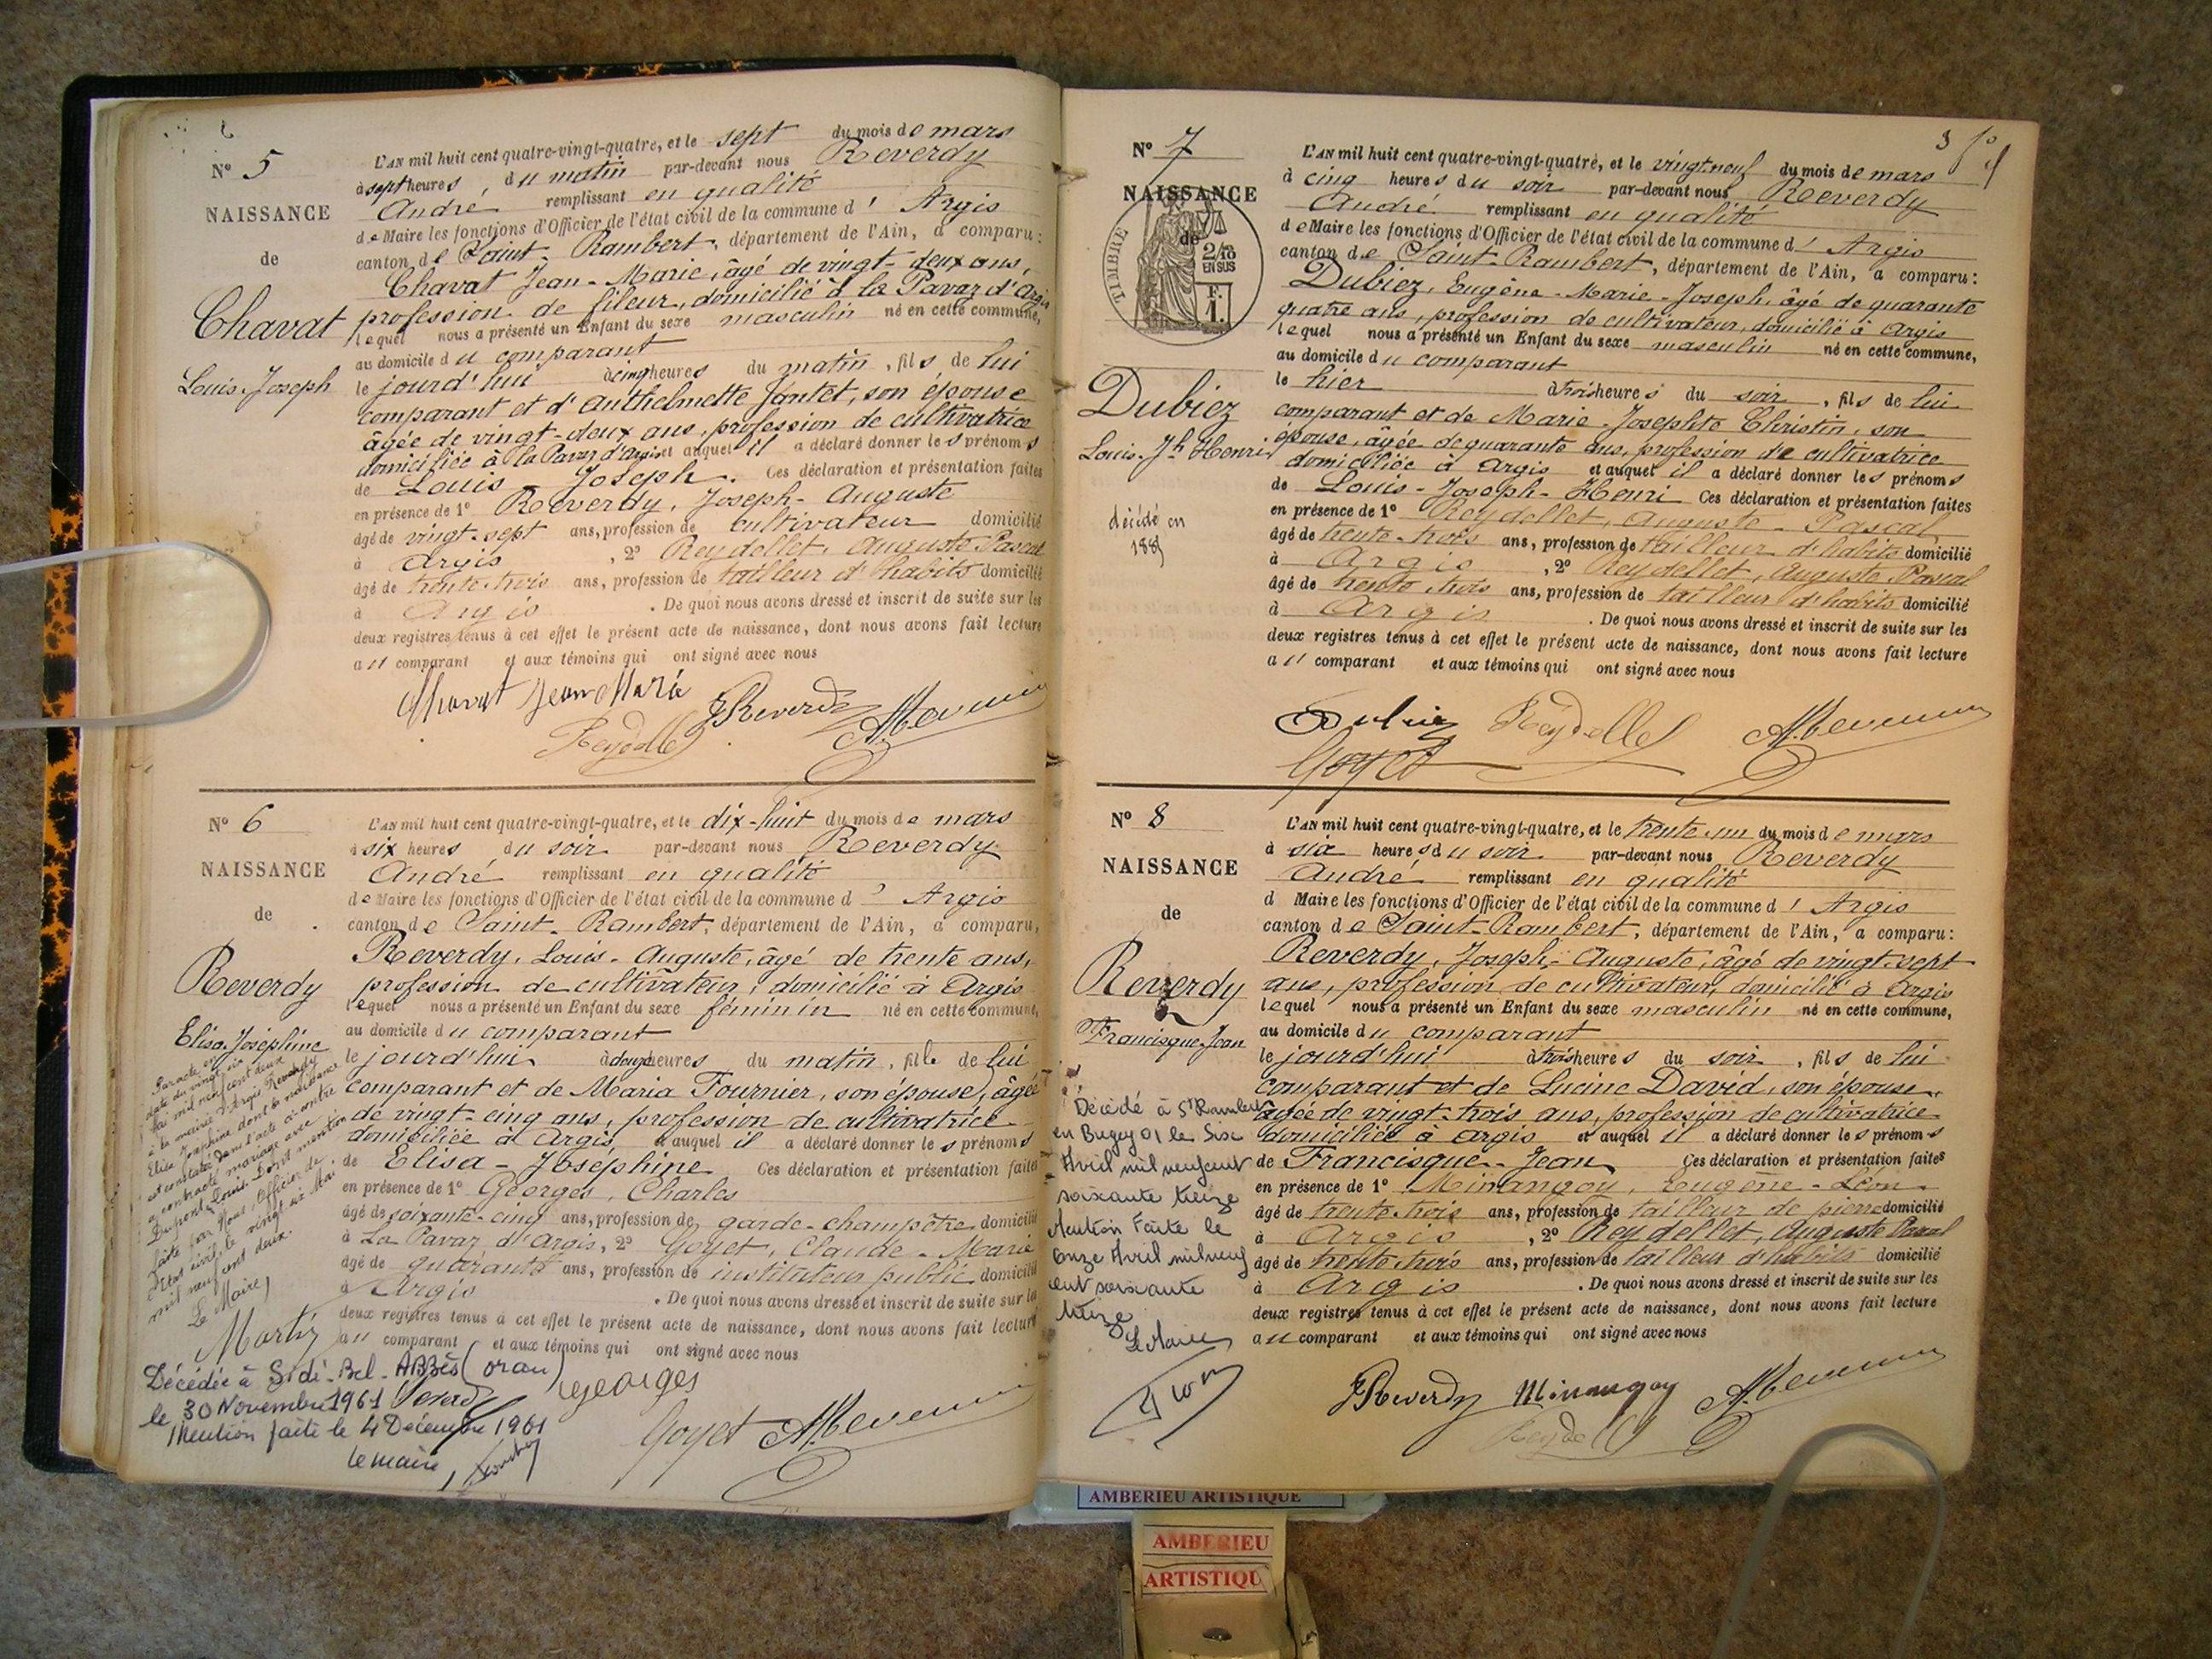 N° 5
NAISSANCE
de
Chavat
Louis-Joseph
L'AN mil huit cent quatre-vingt-quatre, et le sept du mois de mars
à sept heures, du matin par-devant nous Reverdy
André remplissant en qualité
de Maire les fonctions d'Officier de l'état civil de la commune d' Argis
canton de Saint-Rambert, département de l'Ain, a comparu:
Chavat Jean-Marie, âgé de vingt-deux ans,
profession de fileur, domicilié à la Pavaz d'Argis
lequel nous a présenté un Enfant du sexe masculin né en cette commune,
au domicile du comparant
le jourd'hui à cinq heures du matin, fils de lui
comparant et d'Anthelmette Jantet, son épouse
âgée de vingt-deux ans, profession de cultivatrice
domiciliée à la Pavaz d'Argis et auquel il a déclaré donner les prénoms
de Louis-Joseph. Ces déclaration et présentation faites
en présence de 1° Reverdy, Joseph-Auguste
âgé de vingt-sept ans, profession de cultivateur domicilié
à Argis, 2° Reydellet, Auguste Pascal
âgé de trente-trois ans, profession de tailleur d'habits domicilié
à Argis. De quoi nous avons dressé et inscrit de suite sur les
deux registres tenus à cet effet le présent acte de naissance, dont nous avons fait lecture
au comparant et aux témoins qui ont signé avec nous
Chavat Jean Marie JReverdy
Reydellet
N° 6
NAISSANCE
de
Reverdy
Elisa Joséphine
Par acte en
date du vingt six
Mai mil neuf cent deux
à la mairie d'Argis Reverdy
Elisa Joséphine dont la naissance
est constatée dans l'acte ci-contre
a contracté mariage avec
Dupont Louis. Dont mention
faite par Nous, Officier de
l'Etat civil, le vingt six Mai
mil neuf cent deux.
Le Maire,
Décédée à Sidi-Bel-Abbès (Oran)
le 30 Novembre 1961
Mention faite le 4 Décembre 1961
Le maire,
L'AN mil huit cent quatre-vingt-quatre, et le dix-huit du mois de mars
à six heures du soir par-devant nous Reverdy
André remplissant en qualité
de Maire les fonctions d'Officier de l'état civil de la commune d' Argis
canton de Saint-Rambert, département de l'Ain, a comparu,
Reverdy, Louis-Auguste, âgé de trente ans,
profession de cultivateur, domicilié à Argis
lequel nous a présenté un Enfant du sexe féminin né en cette commune,
au domicile du comparant
le jourd'hui à onze heures du matin, fille de lui
comparant et de Maria Fournier, son épouse, âgée
de vingt-cinq ans, profession de cultivatrice
domiciliée à Argis et auquel il a déclaré donner les prénoms
de Elisa-Joséphine Ces déclaration et présentation faites
en présence de 1° Georges, Charles
âgé de soixante-cinq ans, profession de garde-champêtre domicilié
à La Pavaz d'Argis, 2° Goyet, Claude-Marie
âgé de quarante ans, profession de instituteur public domicilié
à Argis. De quoi nous avons dressé et inscrit de suite sur les
deux registres tenus à cet effet le présent acte de naissance, dont nous avons fait lecture
au comparant et aux témoins qui ont signé avec nous
Georges
Goyet
3
N° 7
NAISSANCE
de
TIMBRE
2/10
EN SUS
F.
1.
Dubiez
Louis-Jh Henri
décédé en
L'AN mil huit cent quatre-vingt-quatre, et le vingt-neuf du mois de mars
à cinq heures du soir par-devant nous Reverdy
André remplissant en qualité
de Maire les fonctions d'Officier de l'état civil de la commune d' Argis
canton de Saint-Rambert, département de l'Ain, a comparu:
Dubiez, Eugène-Marie-Joseph, âgé de quarante
quatre ans, profession de cultivateur, domicilié à Argis
lequel nous a présenté un Enfant du sexe masculin né en cette commune,
au domicile du comparant
le hier à trois heures du soir, fils de lui
comparant et de Marie-Josephte Christin, son
épouse, âgée de quarante ans, profession de cultivatrice
domiciliée à Argis et auquel il a déclaré donner les prénoms
de Louis-Joseph-Henri Ces déclaration et présentation faites
en présence de 1° Reydellet, Auguste-Pascal
âgé de trente-trois ans, profession de tailleur d'habits domicilié
à Argis, 2° Reydellet, Auguste Pascal
âgé de trente trois ans, profession de tailleur d'habits domicilié
à Argis. De quoi nous avons dressé et inscrit de suite sur les
deux registres tenus à cet effet le présent acte de naissance, dont nous avons fait lecture
au comparant et aux témoins qui ont signé avec nous
Dubiez Reydellet
Goyet
N° 8
NAISSANCE
de
Reverdy
Francisque-Jean
Décédé à St Rambert
en Bugey 01 le Six
Avril mil neuf cent
soixante treize
Mention Faite le
Onze Avril mil neuf
cent soixante
treize
Le Maire
L'AN mil huit cent quatre-vingt-quatre, et le trente-un du mois de mars
à six heures du soir par-devant nous Reverdy
André remplissant en qualité
d Maire les fonctions d'Officier de l'état civil de la commune d' Argis
canton de Saint-Rambert, département de l'Ain, a comparu:
Reverdy, Joseph-Auguste, âgé de vingt-sept
ans, profession de cultivateur, domicilié à Argis
lequel nous a présenté un Enfant du sexe masculin né en cette commune,
au domicile du comparant
le jourd'hui à trois heures du soir, fils de lui
comparant et de Lucine David, son épouse,
âgée de vingt-trois ans, profession de cultivatrice
domiciliée à Argis et auquel il a déclaré donner les prénoms
de Francisque-Jean Ces déclaration et présentation faites
en présence de 1° Minangoy, Eugène-Léon
âgé de trente-trois ans, profession de tailleur de pierre domicilié
à Argis, 2° Reydellet, Auguste Pascal
âgé de trente trois ans, profession de tailleur d'habits domicilié
à Argis. De quoi nous avons dressé et inscrit de suite sur les
deux registres tenus à cet effet le présent acte de naissance, dont nous avons fait lecture
au comparant et aux témoins qui ont signé avec nous
JReverdy Minangoy
Reydellet
AMBERIEU ARTISTIQUE
AMBERIEU
ARTISTIQU